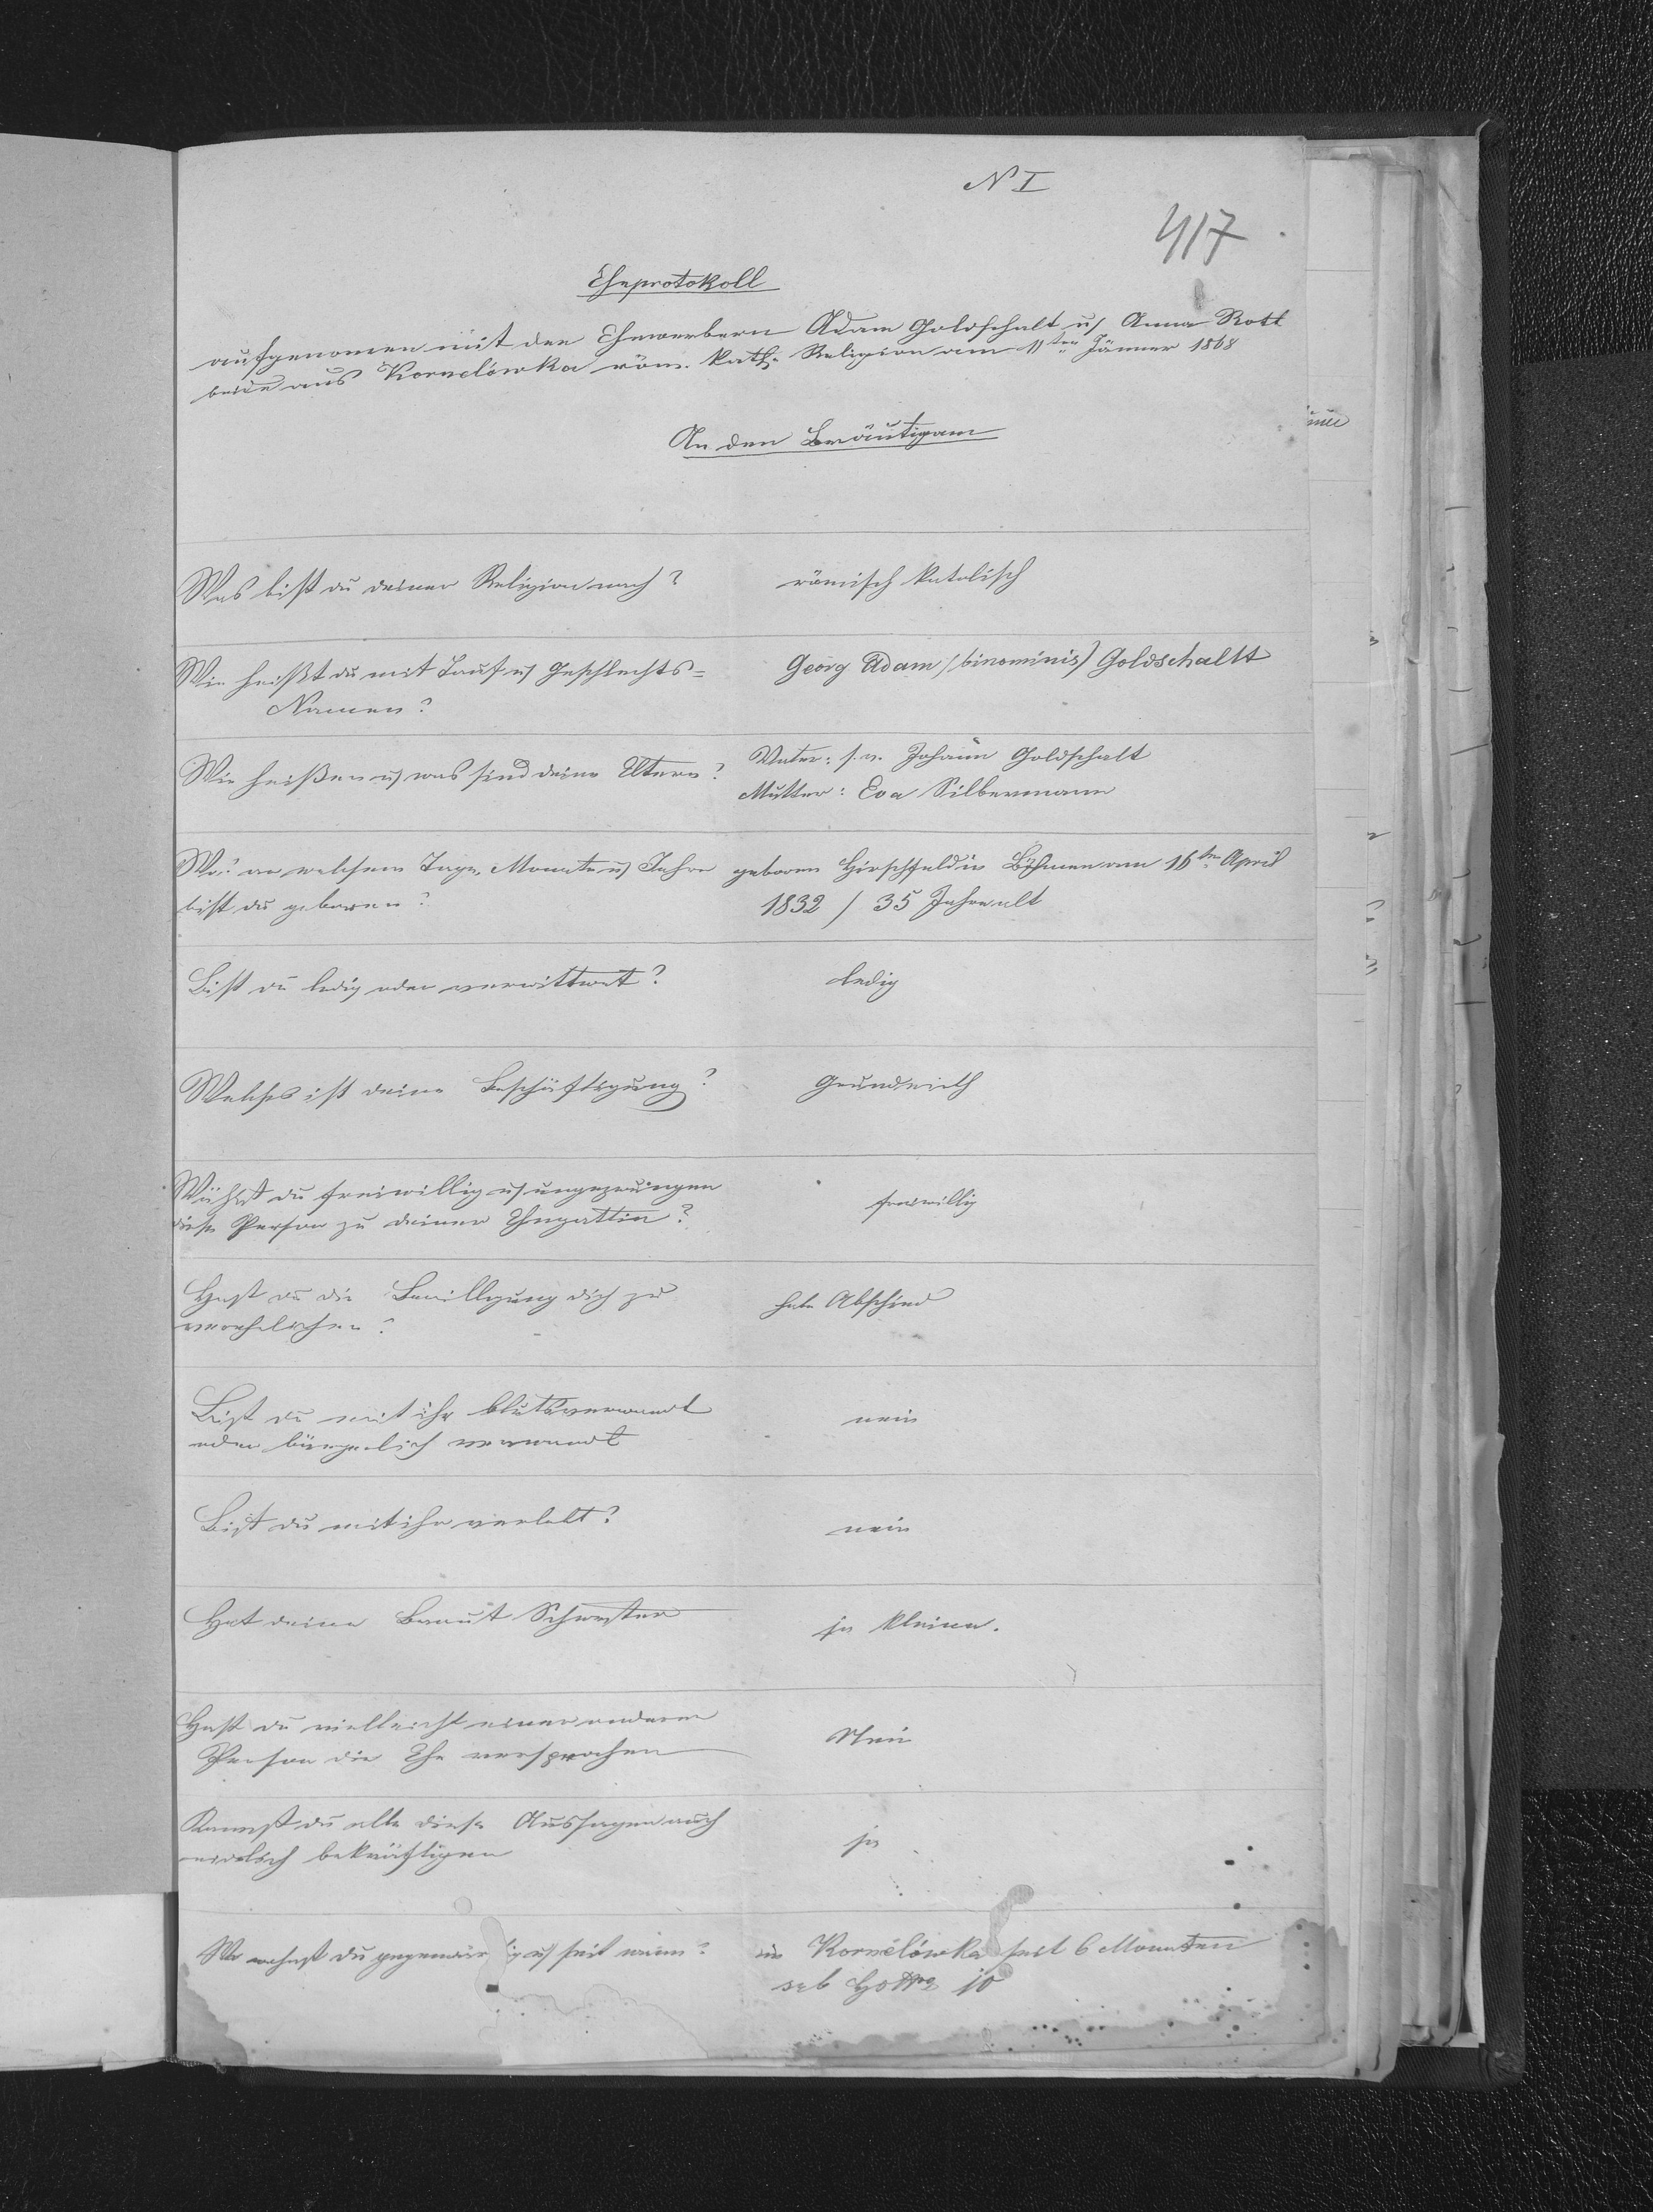 N I
417
Eheprotokoll
aufgenomen mit den Ehewerbern Adam Goldschalt u. Anna Rott
beide aus Kornelówka röm. kath. Religion am 11ten Jänner 1868
An den Bräutigam
Was bist du deiner Religion nach?
römisch katolisch
Wie heißt du mit Tauf u. Geschlechts=
Namen?
Georg Adam (binominis) Goldschaltt
Wie heißen u. was sind deine Eltern?
Vater: Johann Goldschalt
Mutter: Eva Silbermann
Wo? an welchem Tage, Monate u. Jahre
bist du geboren?
geboren Hirschfeld in Böhmen am 16ten April
1832 / 35 Jahre alt
Bist du ledig oder verwittwet?
ledig
Welches ist deine Beschäftigung?
Grundwirth
Wählst du freiwillig u. ungezwungen
diese Person zu deiner Ehegattin?
freiwillig
Hast du die Bewilligung dich zu
verehelichen?
habe Abschied
Bist du mit ihr blutsverwandt
oder bürgerlich verwandt
nein
Bist du mit ihr
nein
Hat deine Braut Schwester
ja kleine.
Hast du vielleicht einer anderen
Person die Ehe versprochen
Nein
Kannst du alle diese Aussagen auch
eidlich bekräftigen
ja
Wo wohnst du gegenwärtig u. seit wann?
in Kornelówka seit 6 Monaten
sub 10